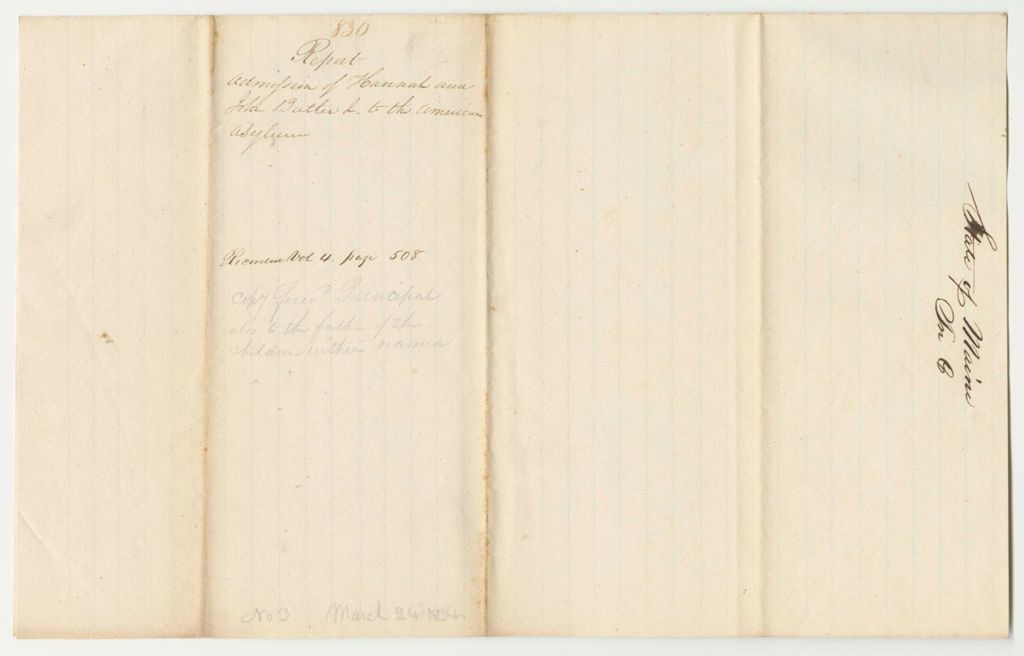 830
Report
Admission of Hannah and
John Butler Jr. to the American
Asylum
Recorded Vol 4. page 508
Copy forwd Principal
also to the father of the
children within named
No 3 March 24 1834
State of Maine